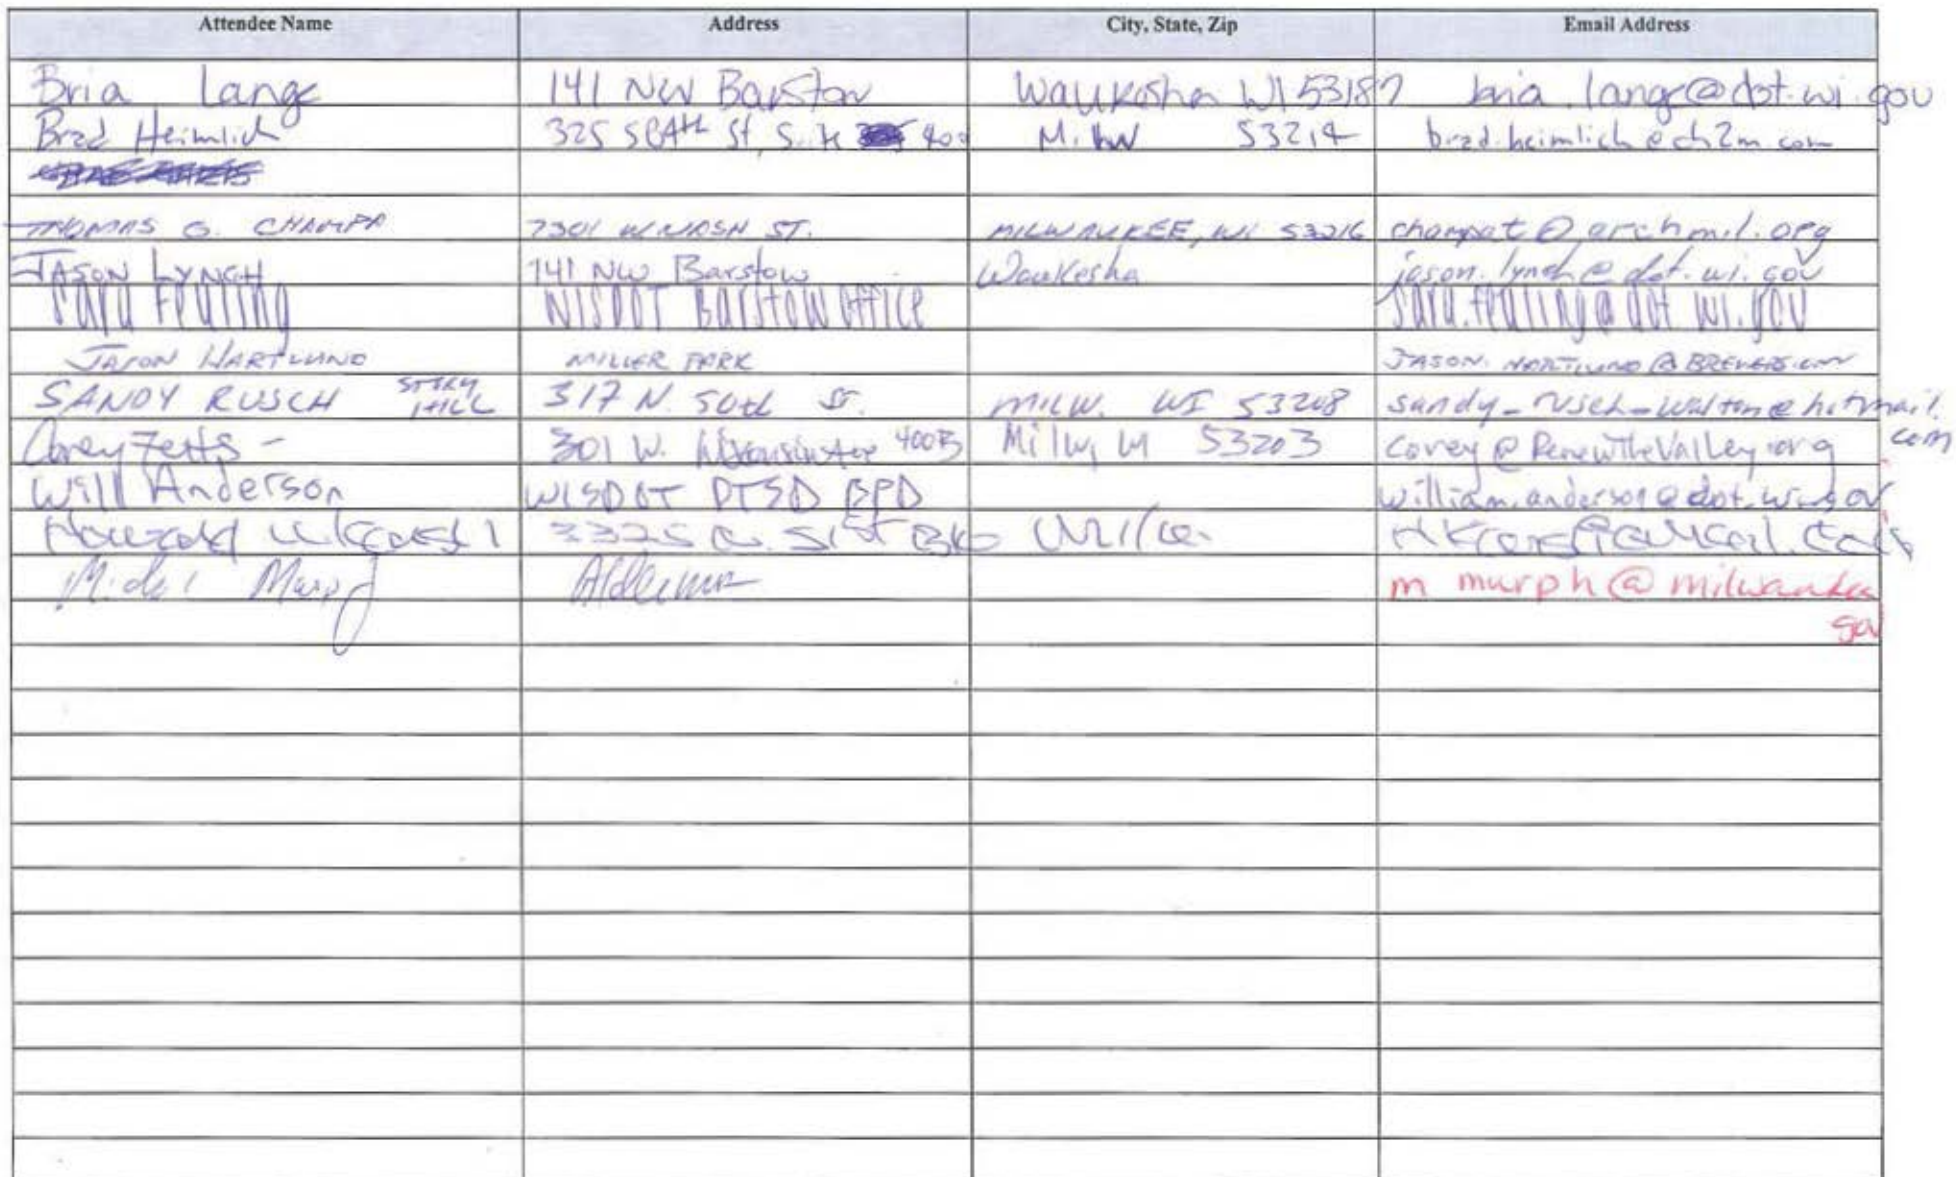 Attendee Name Address City, State, Zip Email Address
Bria Lange 141 NW Barstow Waukesha WI 53187 bria.lange@dot.wi.gov
Brad Heimlich 325 S 84th St, Suite 400 Milw 53214 brad.heimlich@ch2m.com
THOMAS G. CHAMPA 7301 W. NASH ST. MILWAUKEE, WI 53216 champat@archmil.org
JASON LYNCH 141 NW Barstow Waukesha jason.lynch@dot.wi.gov
Sara Feuling WISDOT Barstow Office sara.feuling@dot.wi.gov
JASON HARTLUND MILLER PARK JASON.HARTLUND@BREWERS.COM
SANDY RUSCH STORY HILL 317 N. 50th ST. MILW. WI 53208 sandy_rusch_walton@hotmail.com
Corey Zetts - 301 W. Wisconsin Ave 400B Milw, WI 53203 Corey@RenewTheValley.org
Will Anderson WISDOT DTSD BPD william.anderson@dot.wi.gov
3325 51st
Murphy Alderman m murph@milwaukee
gov